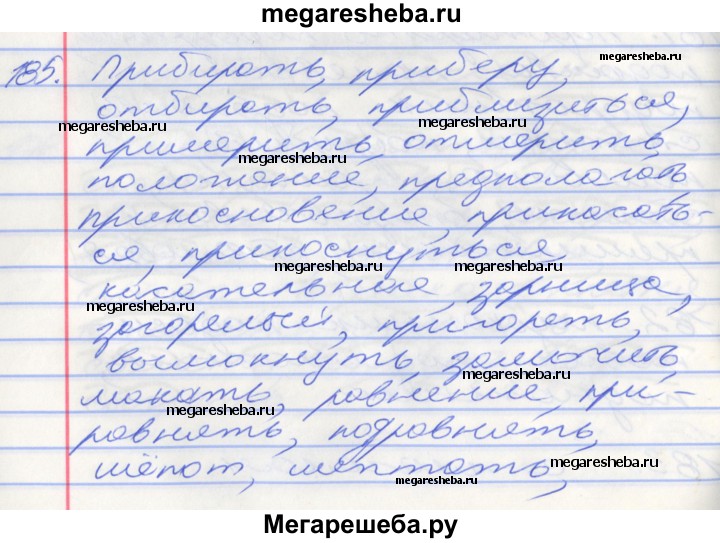 megaresheba.ru
megaresheba.ru
185. Прибирать, приберу,
отбирать, приблизиться,
megaresheba.ru
megaresheba.ru
примерить, отмерить,
megaresheba.ru
положение, предполагать,
прикосновение, прикасать-
ся, прикоснуться,
megaresheba.ru megaresheba.ru
касательная, зарница,
megaresheba.ru
загорелый, пригореть,
вымокнуть, замочить,
megaresheba.ru
макать, равнение, при-
megaresheba.ru
равнять, подровнять,
шёпот, шептать,
megaresheba.ru
megaresheba.ru
Мегарешеба.ру